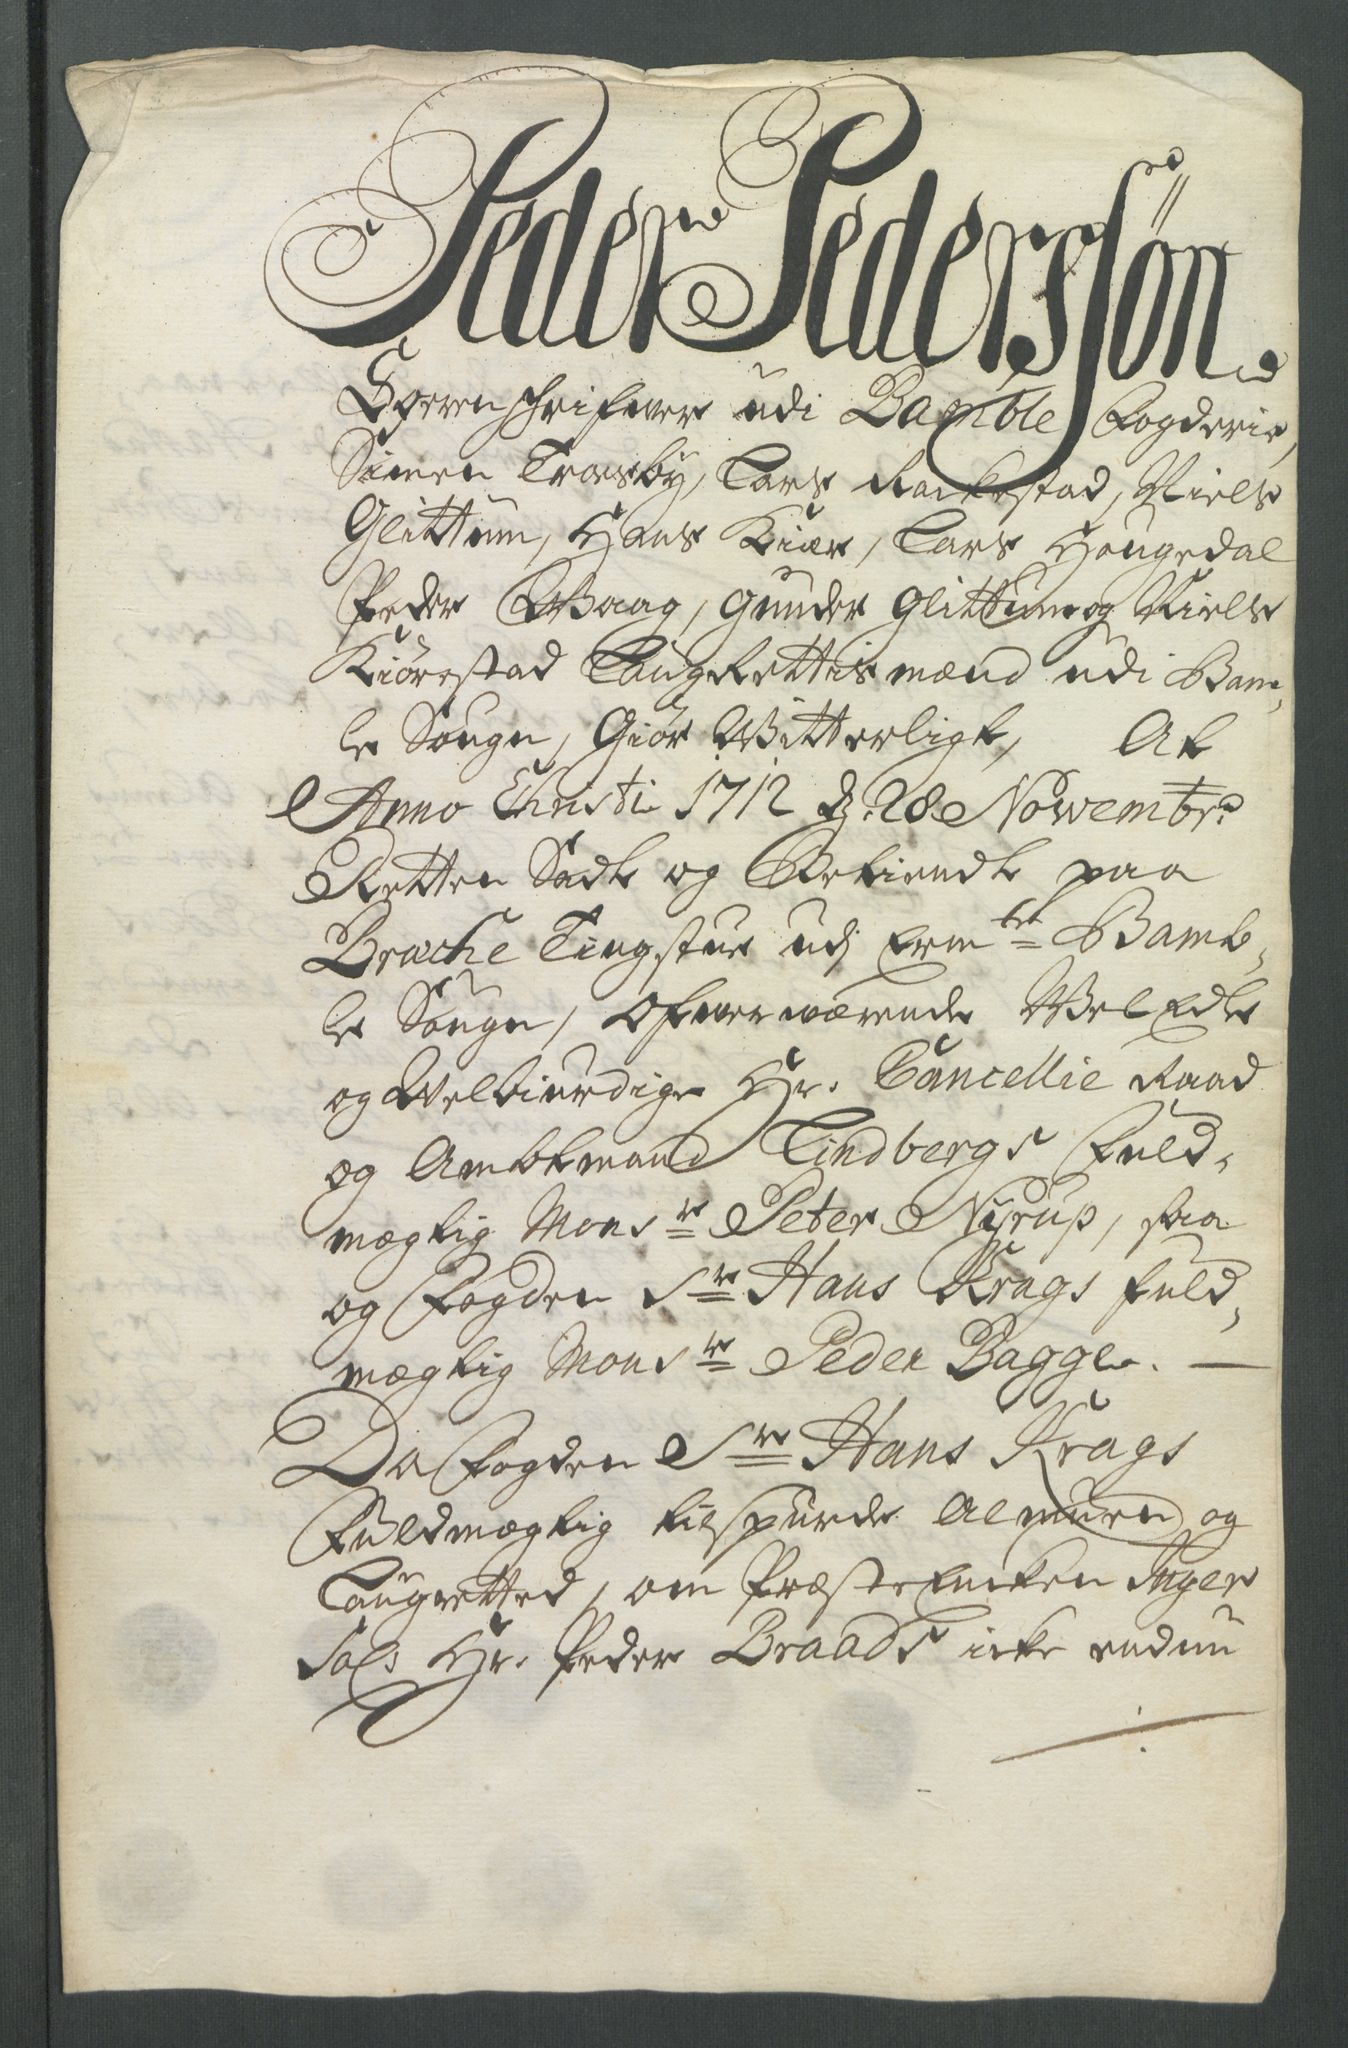 Peder Pederssøn
Sorenschrifwer udi Bamble Fogderie,
Simen Trosby, Lars Rachestad, Niels
Glittum, Hans Kiær, Lars Hougedal
Peder Waag, Gunder Glittum og Niels
Kiørestad LaugRettismænd udi Bam„
le Sougn, Giør Witterligt, At
Anno Christi 1712 d. 28 Nowembr.
Retten Sadt og Betiendt paa
Brache Tingstue udj Erm.te Bamb„
le Sougn, Ofwerwærende WelEdle
og Welbiurdige Hr. Cancellie Raad
og Ambtmand Tindbergs Fuld„
mægtig Monsr Peter Nyrup, saa
og Fogden Sr Hans Krags fuld„
mægtig Monsr Peder Bagge.
Da Fogden Sr Hans Krags
Fuldmægtig tilspurde Almuen og
Laugretted, om PræsteEncken Inger
Sal. Hr. Peder Braads icke endnu